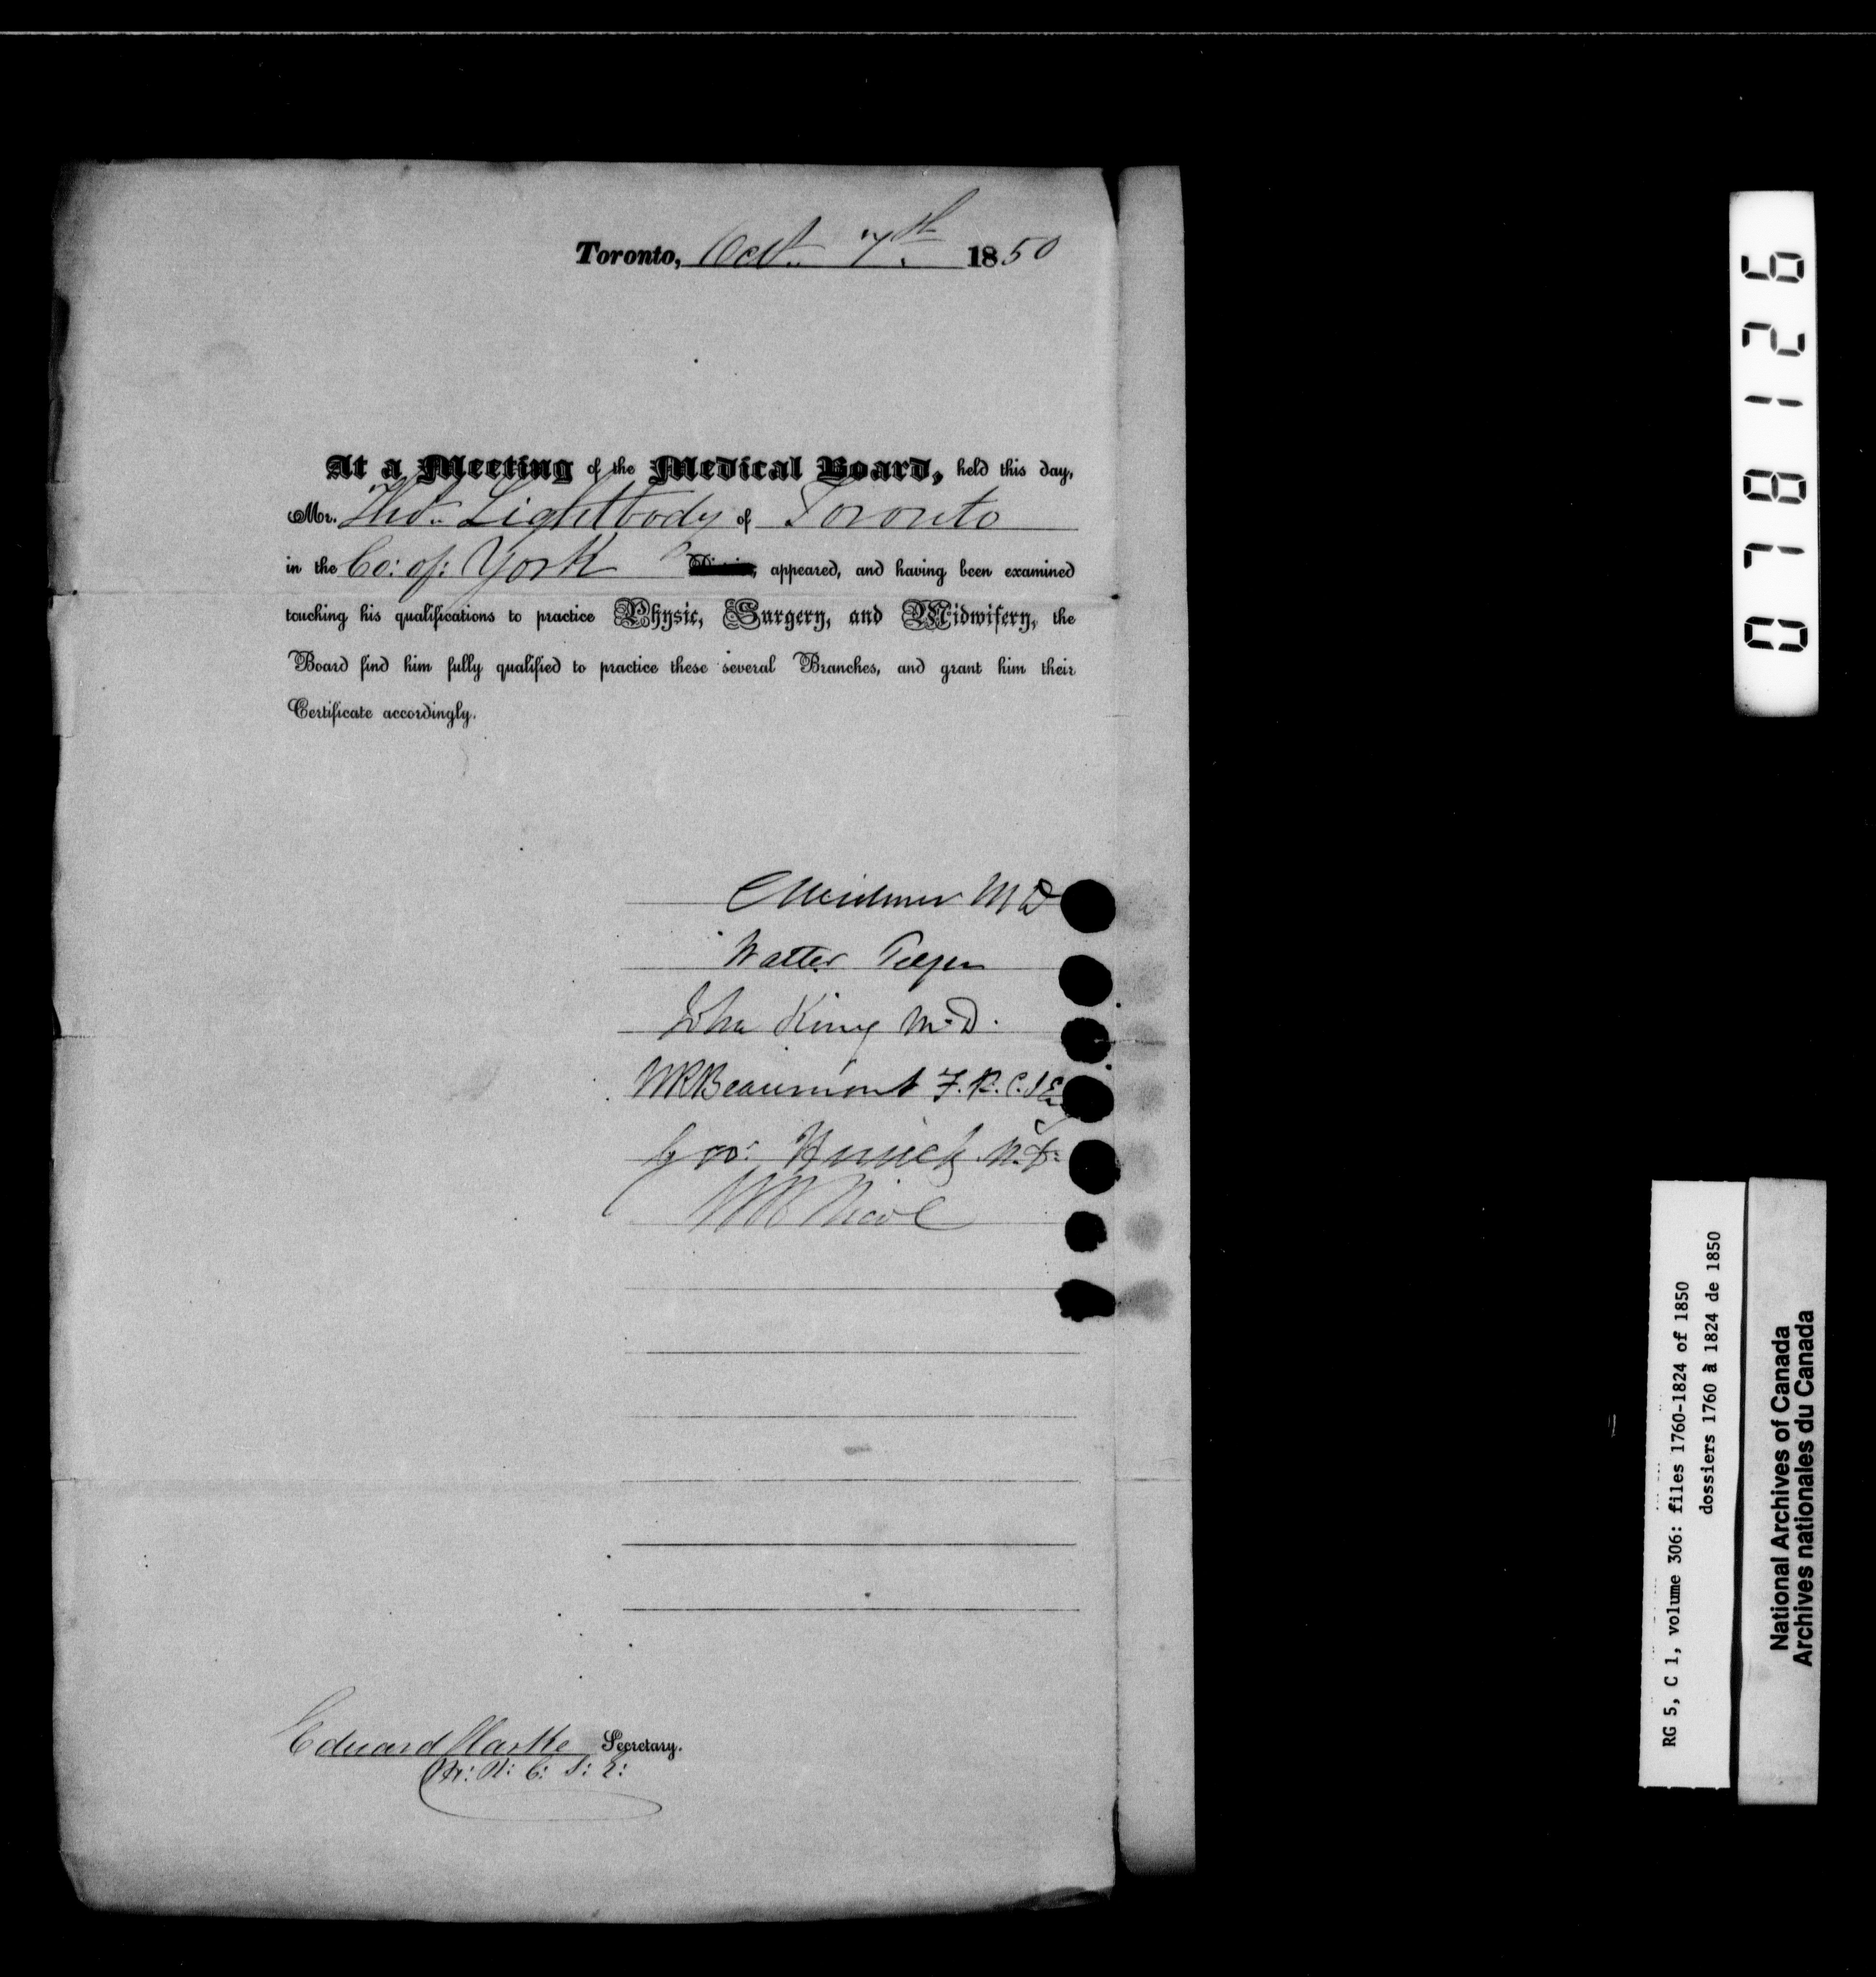 Toronto, Oct. 7th 1850
At a Meeting of the Medical Board, held this day,
Mr. Thos. Lightbody of Toronto
in the Co: of: York appeared, and having been examined
touching his qualifications to practice Physic, Surgery, and Midwifery, the
Board find him fully qualified to practice these several Branches, and grant him their
Certificate accordingly.
C Widmer MD
Walter Telfer
John King M.D.
WRBeaumont F.R.C.S E
Geo: Herrick M.D.
WB Nicol
Edward Clarke Secretary.
M: R: C: S: L:
078126
RG 5, C 1, volume 306: files 1760-1824 of 1850
dossiers 1760 à 1824 de 1850
National Archives of Canada
Archives nationales du Canada